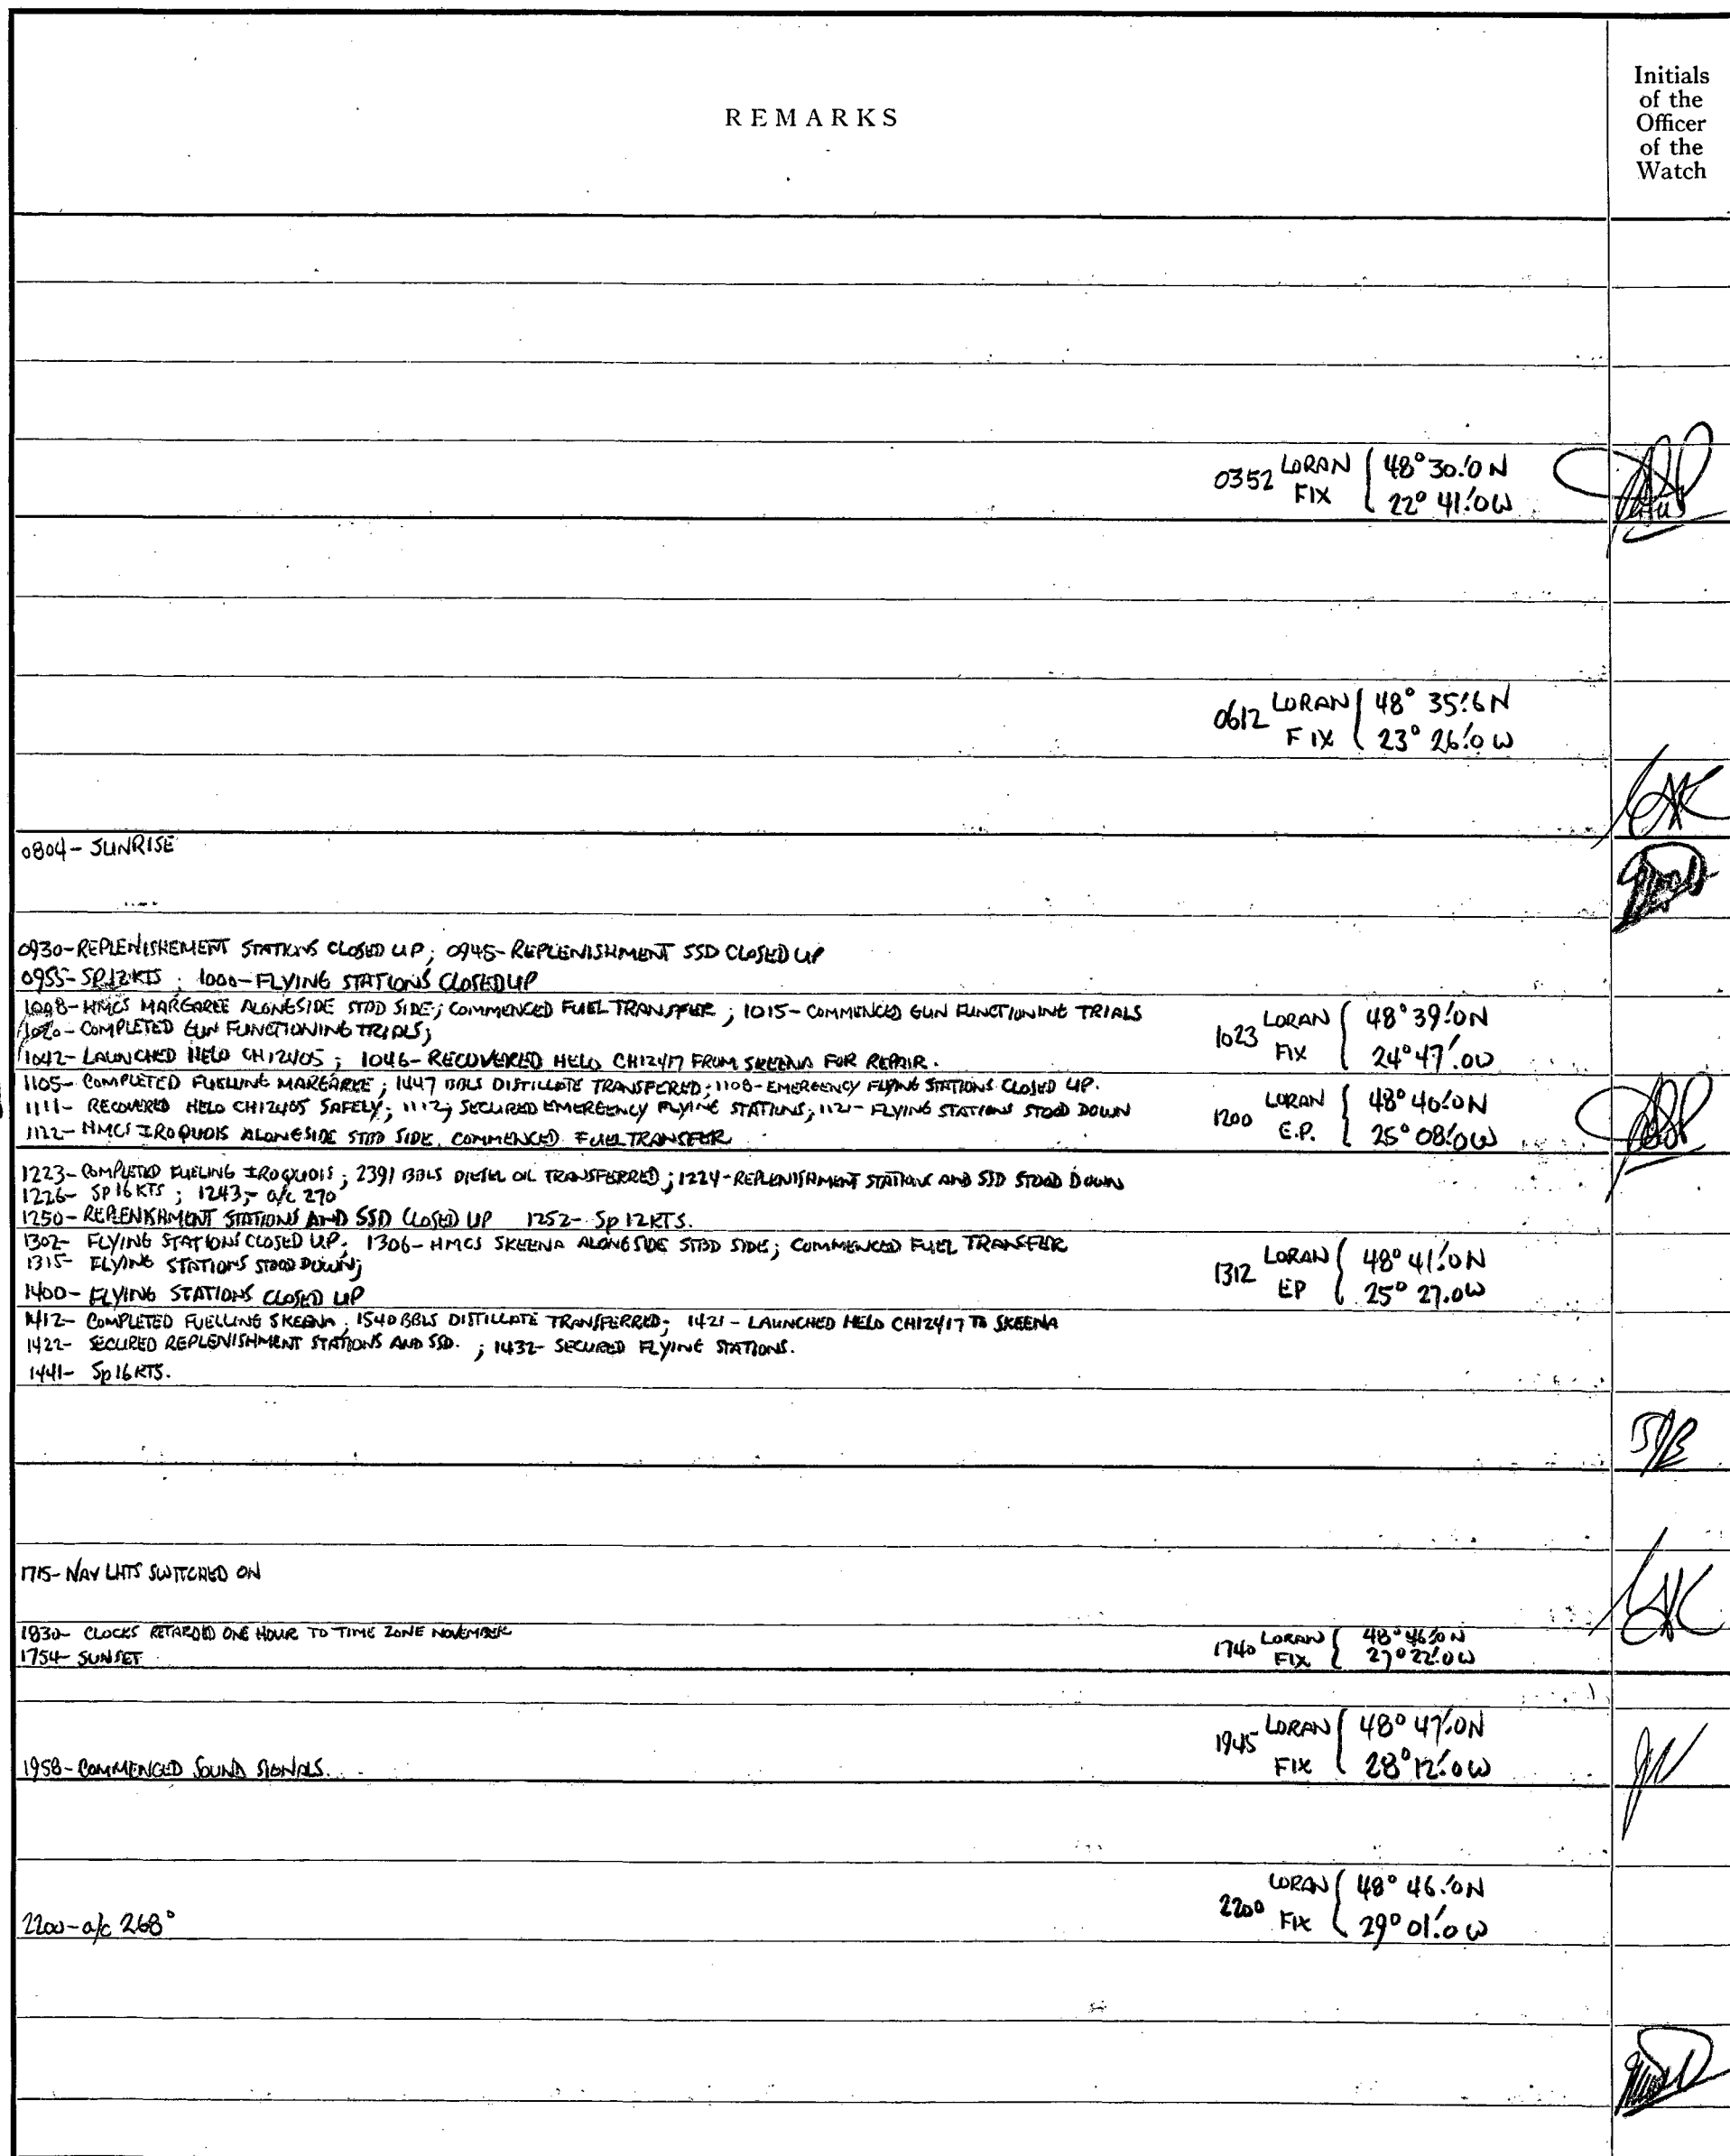 REMARKS
Initials
of the
Officer
of the
Watch
0352 LORAN FIX { 48° 30.'0 N
22° 41.'0 W
0612 LORAN FIX { 48° 35.'6 N
23° 26.'0 W
0804- SUNRISE
0930-REPLENISHEMENT STATIONS CLOSED UP; 0945-REPLENISHMENT SSD CLOSED UP
0955- SP12KTS; 1000-FLYING STATIONS CLOSED UP
1008-HMCS MARGAREE ALONGSIDE STBD SIDE; COMMENCED FUEL TRANSFER; 1015- COMMENCED GUN FUNCTIONING TRIALS
1020- COMPLETED GUN FUNCTIONING TRIALS;
1023 LORAN FIX { 48° 39.'0N
24° 47.'0W
1042- LAUNCHED HELO CH12405; 1046- RECOVERED HELO CH12417 FROM SKEENA FOR REPAIR.
1105- COMPLETED FUELLING MARGAREE; 1447 BBLS DISTILLATE TRANSFERED; 1108-EMERGENCY FLYING STATIONS CLOSED UP.
1111- RECOVERED HELO CH12405 SAFELY; 1112; SECURED EMERGENCY FLYING STATIONS; 1121- FLYING STATIONS STOOD DOWN
1122- HMCS IROQUOIS ALONGSIDE STBD SIDE. COMMENCED FUEL TRANSFER
1200 LORAN E.P. { 48° 40.'0N
25° 08.'0W
1223-COMPLETED FUELING IROQUOIS; 2391 BBLS DIESEL OIL TRANSFERRED; 1224-REPLENISHMENT STATIONS AND SSD STOOD DOWN
1226- Sp 16 KTS; 1243;- a/c 270
1250-REPLENISHMENT STATIONS AND SSD CLOSED UP 1252- Sp 12KTS.
1302- FLYING STATIONS CLOSED UP; 1306- HMCS SKEENA ALONGSIDE STBD SIDE; COMMENCED FUEL TRANSFER
1315- FLYING STATIONS STOOD DOWN;
1312 LORAN EP { 48° 41.'0N
25° 27.0W
1400- FLYING STATIONS CLOSED UP
1412- COMPLETED FUELLING SKEENA; 1540 BBLS DISTILLATE TRANSFERRED; 1421- LAUNCHED HELO CH12417 TO SKEENA
1422- SECURED REPLENISHMENT STATIONS AND SSD. ; 1432- SECURED FLYING STATIONS.
1441- Sp 16 KTS.
1715- NAV LHTS SWITCHED ON
1830- CLOCKS RETARDED ONE HOUR TO TIME ZONE NOVEMBER
1754- SUNSET
1740 LORAN FIX { 48° 46.'0 N
27° 22.'0 W
1945 LORAN FIX { 48° 47.'0N
28° 12.'0W
1958- COMMENCED SOUND SIGNALS.
2200 LORAN FIX { 48° 46.'0N
29° 01.'0 W
2200- a/c 268°